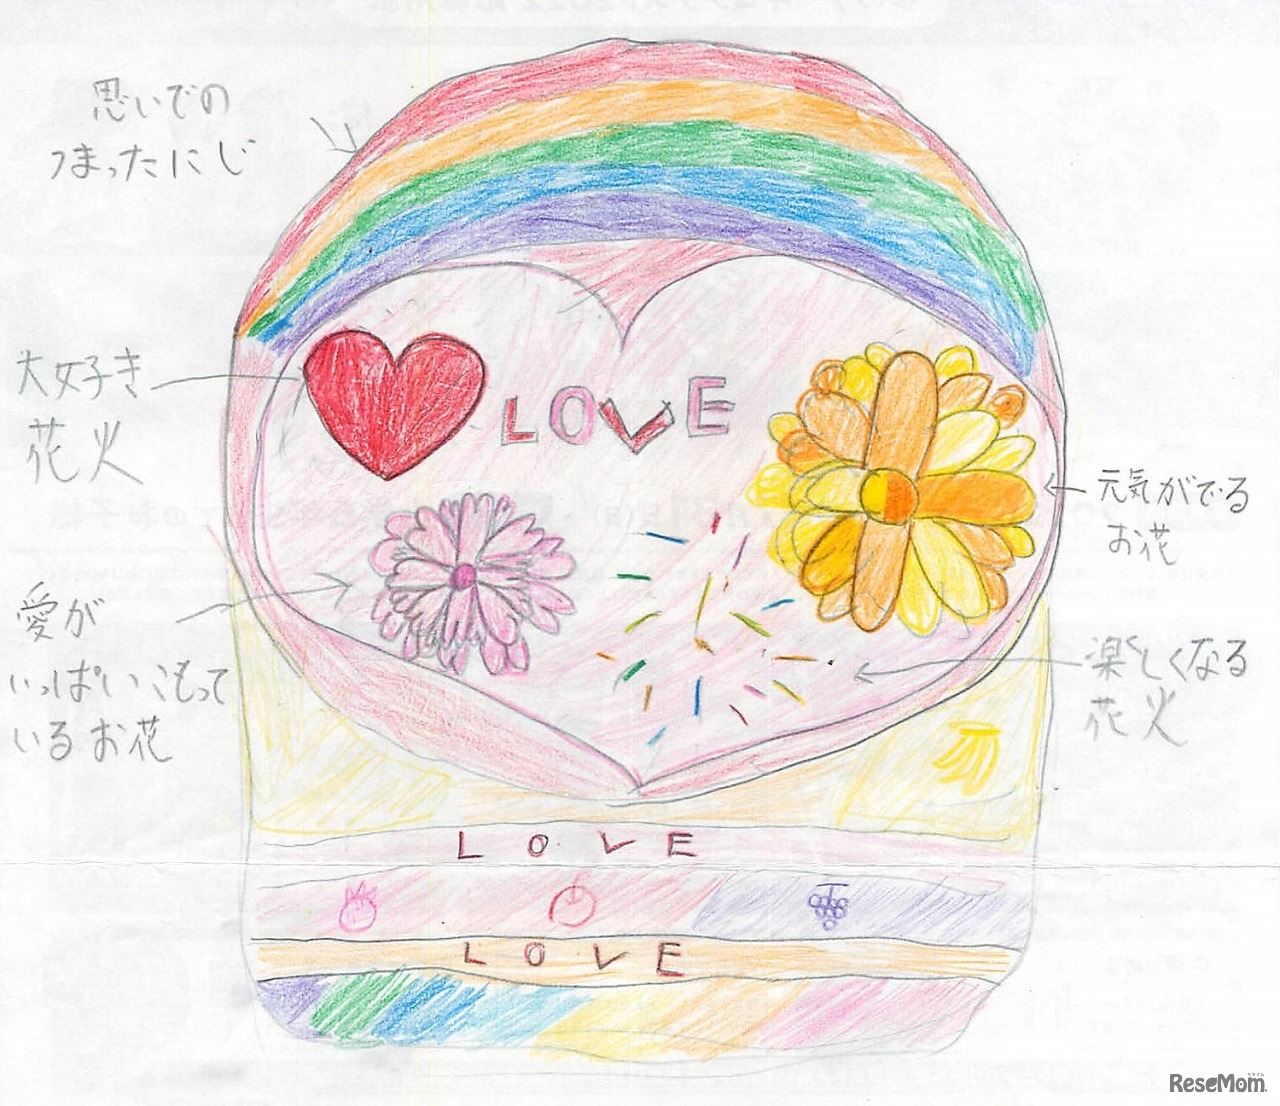 思いでの
つまったにじ
大好き
花火
LOVE
元気がでる
お花
愛が
いっぱいこもって
いるお花
楽しくなる
花火
LOVE
LOVE
ReseMom